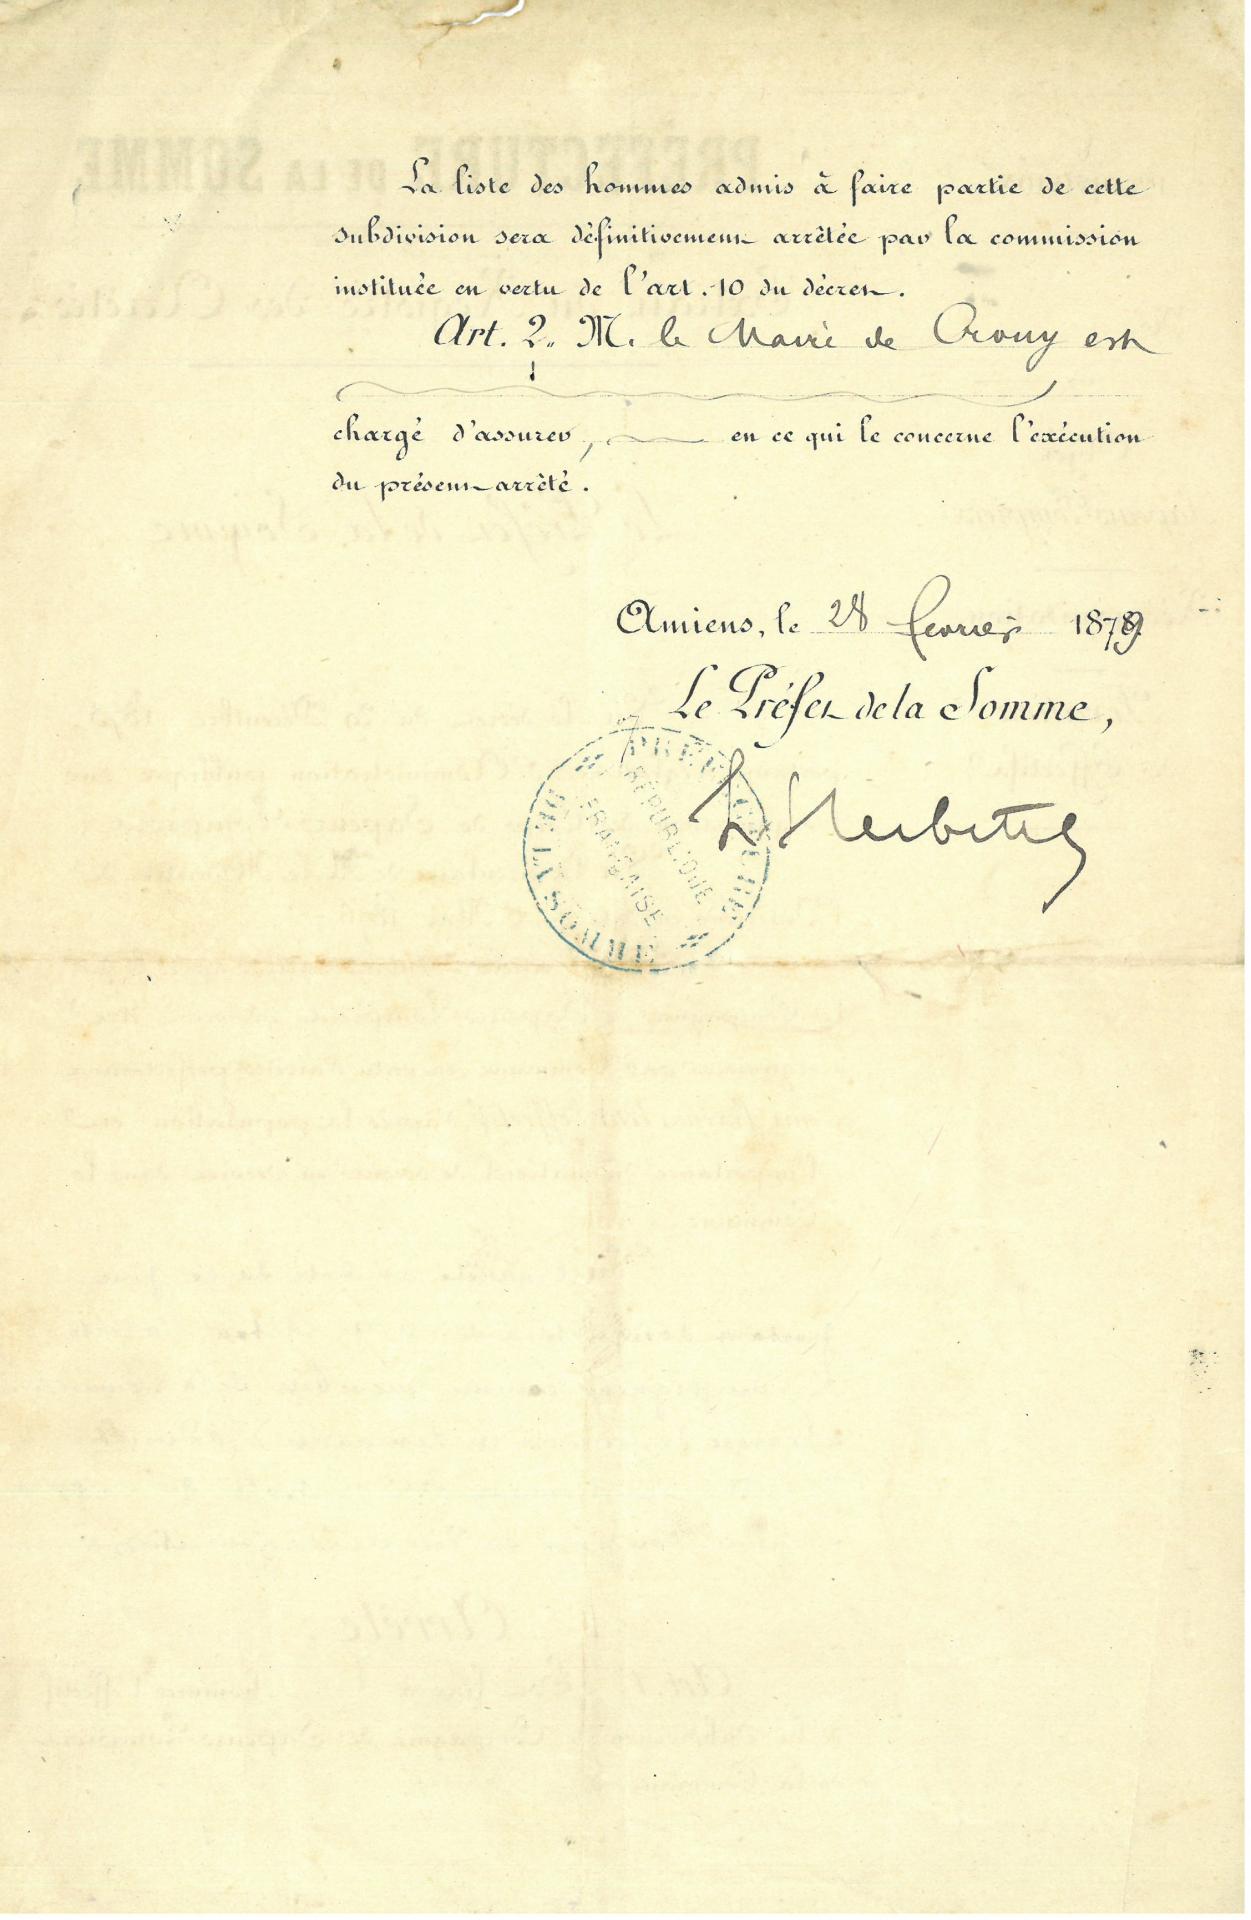 La liste des hommes admis à faire partie de cette
subdivision sera définitivement arrêtée par la commission
instituée en vertu de l'art. 10 du décret.
Art. 2. M. le Maire de Crouy est
chargé d'assurer, en ce qui le concerne l'exécution
du présent arrêté.
Amiens, le 28 février 1879
Le Préfet de la Somme,
PRÉFECTURE DE LA SOMME
RÉPUBLIQUE
FRANÇAISE